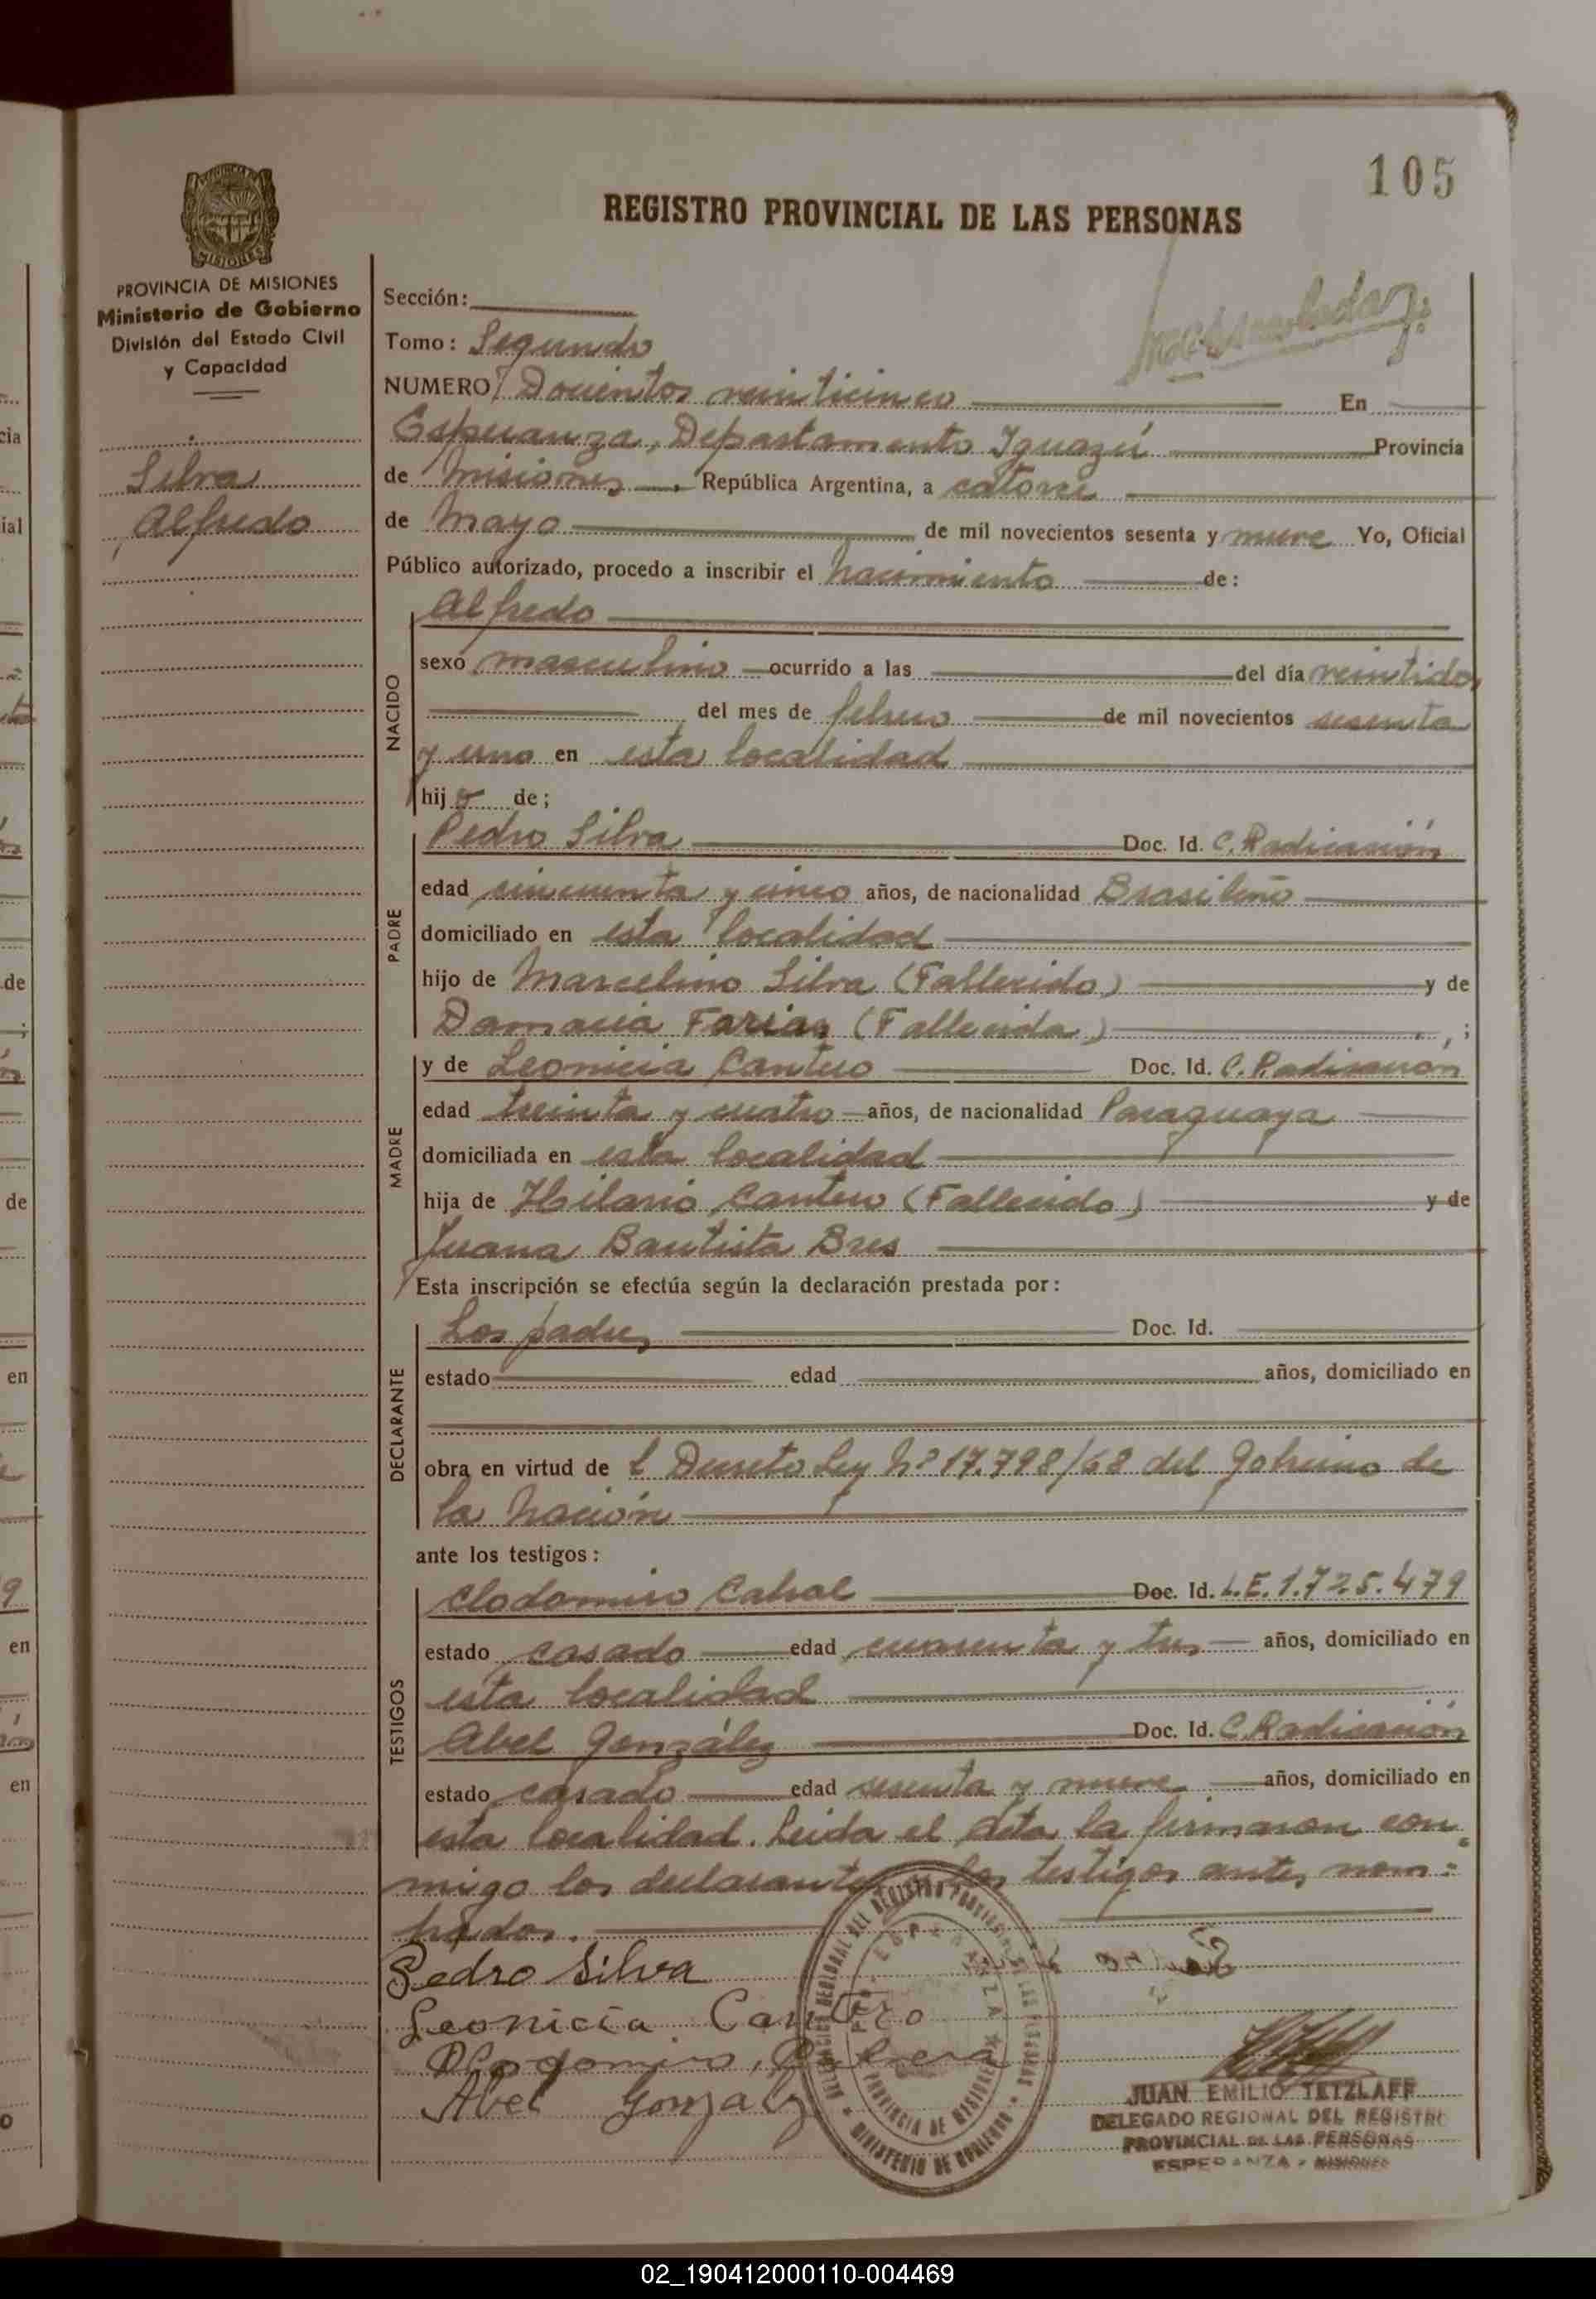 105
REGISTRO PROVINCIAL DE LAS PERSONAS
PROVINCIA DE MISIONES
Ministerio de Gobierno
División del Estado Civil
y Capacidad
Silva
Alfredo
Sección:
Tomo: Segundo
NUMERO Docientos veinticinco En
Esperanza, Departamento Iguazú Provincia
de Misiones República Argentina, a catorce
de Mayo de mil novecientos sesenta y nueve Yo, Oficial
Público autorizado, procedo a inscribir el nacimiento de:
NACIDO
Alfredo
sexo masculino ocurrido a las del día veintidos
del mes de febrero de mil novecientos sesenta
y uno en esta localidad
hijo de;
PADRE
Pedro Silva Doc. Id. C. Radicación
edad cincuenta y cinco años, de nacionalidad Brasileño
domiciliado en esta localidad
hijo de Marcelino Silva (Fallecido) y de
Damacia Farias (Fallecida) ;
MADRE
y de Leonicia Cantero Doc. Id. C. Radicación
edad treinta y cuatro años, de nacionalidad Paraguaya
domiciliada en esta localidad
hija de Hilario Cantero (Fallecido) y de
Juana Bautista Bres
Esta inscripción se efectúa según la declaración prestada por:
DECLARANTE
Los padres Doc. Id.
estado edad años, domiciliado en
obra en virtud de l Decreto Ley Nº 17.798/68 del Gobierno de
la Nación
ante los testigos:
TESTIGOS
Clodomiro Cabral Doc. Id. L.E. 1.725.479
estado casado edad cuarenta y tres años, domiciliado en
esta localidad
Abel González Doc. Id. C. Radicación
estado casado edad sesenta y nueve años, domiciliado en
esta localidad. Leida el Acta la firmaron con
migo los declarantes los testigos antes nom=
brados.
Pedro Silva
Leonicia Cantero
Abel Gonzalz
JUAN EMILIO TETZLAFF
DELEGADO REGIONAL DEL REGISTRO
PROVINCIAL DE LAS PERSONAS
ESPERANZA - MISIONES
02_190412000110-004469